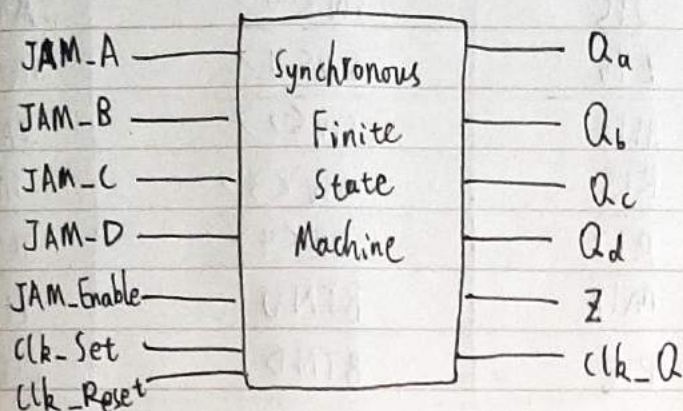 JAM_A
JAM_B
JAM_C
JAM_D
JAM_Enable
Clk_Set
Clk_Reset
Synchronous
Finite
State
Machine
Qa
Qb
Qc
Qd
Z
Clk_Q